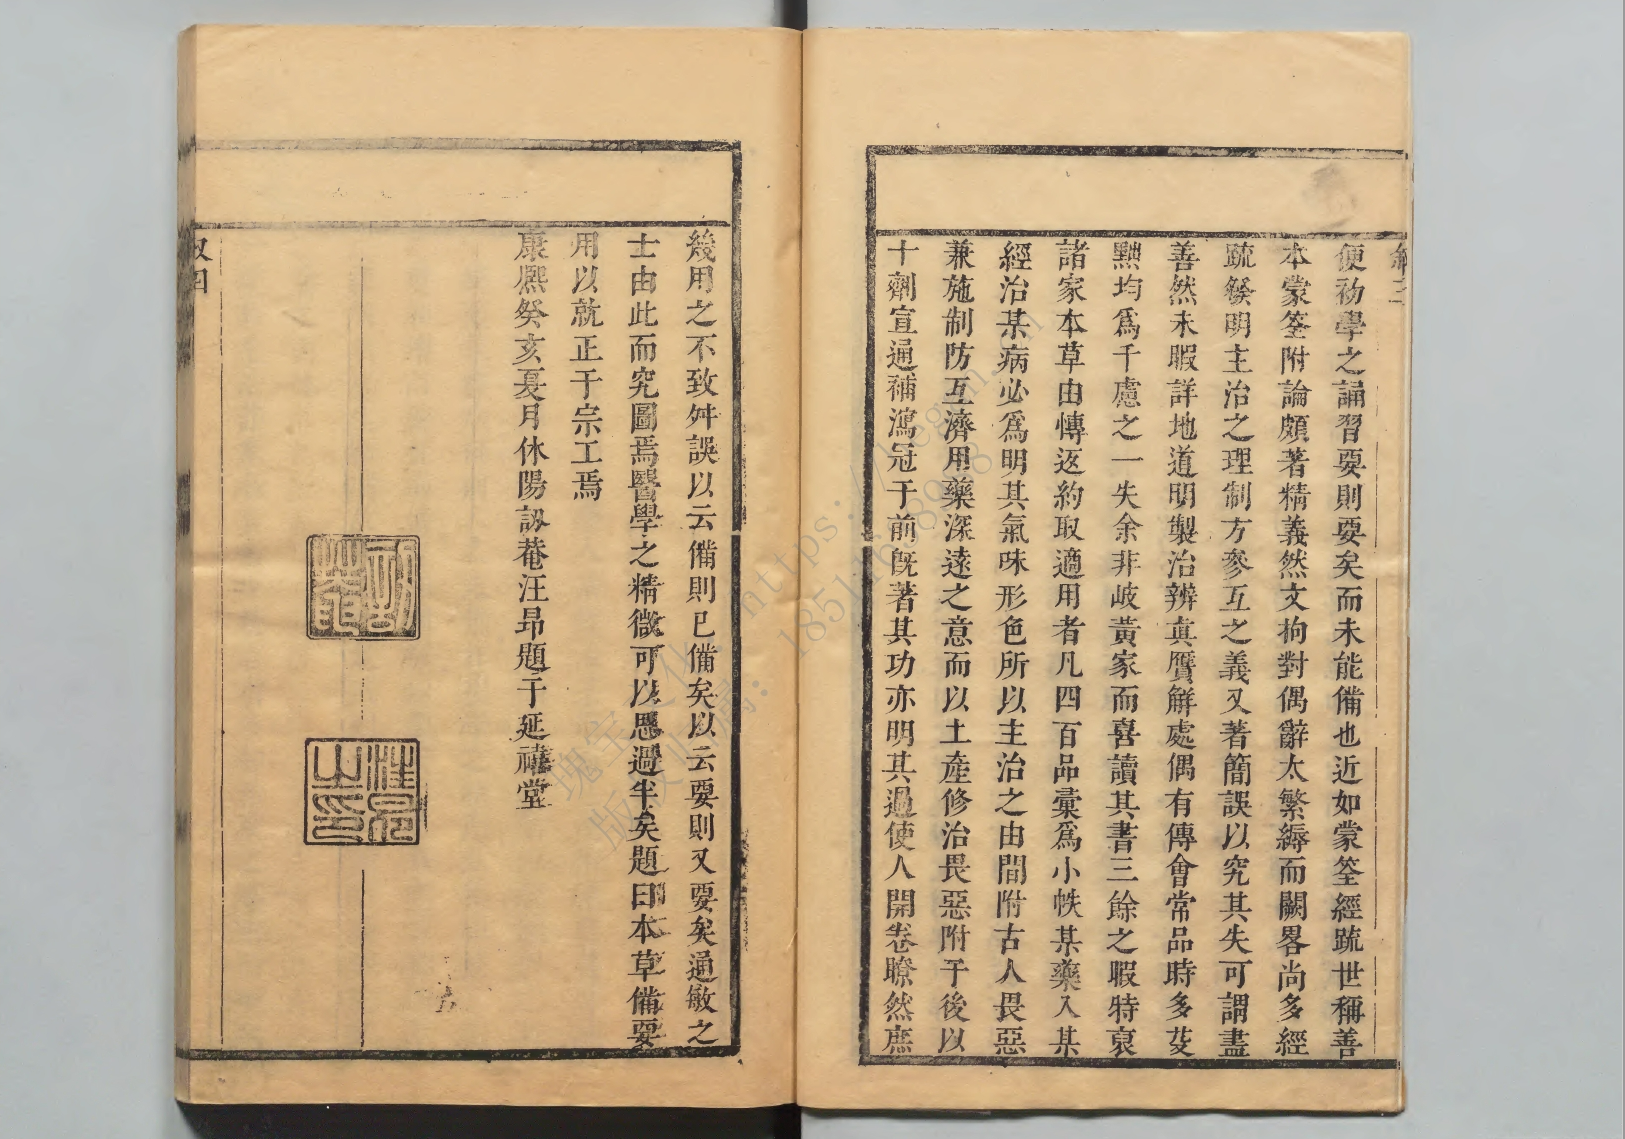 便初學之誦習要則要矣而未能備也近如蒙筌經疏世稱善
本蒙筌附論頗著精義然文拘對偶辭太繁縟而闕畧尚多經
疏發明主治之理制方參互之義又著簡誤以究其失可謂盡
善然未暇詳地道明製治辨真贋解處偶有傳會常品時多芟
黜均爲千慮之一失余非岐黃家而喜讀其書三餘之暇特裒
諸家本草由博返約取適用者凡四百品彙爲小帙某藥入某
經治某病必爲明其氣味形色所以主治之由間附古人畏惡
兼施制防互濟用藥深遠之意而以土產修治畏惡附于後以
十劑宣通補瀉冠于前旣著其功亦明其過使人開卷瞭然庶
幾用之不致舛誤以云備則已備矣以云要則又要矣通敏之
士由此而究圖焉醫學之精微可以思過半矣題曰本草備要
用以就正于宗工焉
康熈癸亥夏月休陽訒菴汪昂題于延禧堂
訒菴
汪昂之印
叙四
瑰宝文化:https://
版权归属:18511689